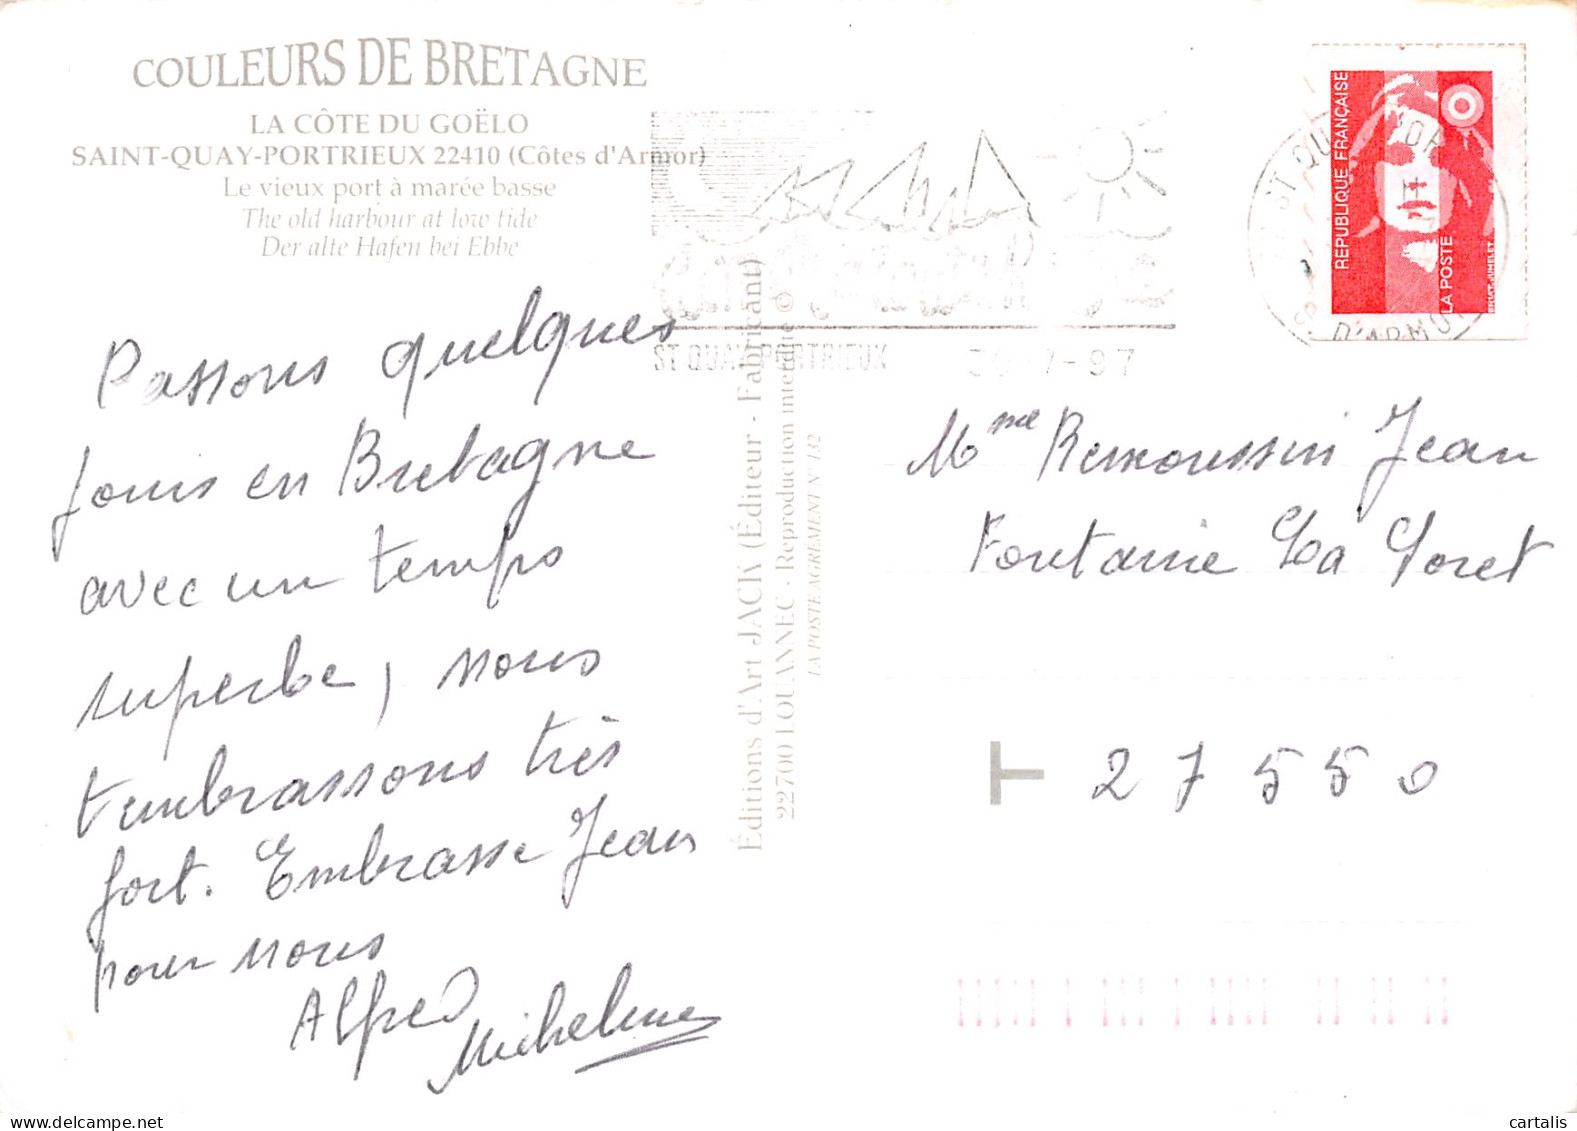 COULEURS DE BRETAGNE
LA CÔTE DU GOËLO
SAINT-QUAY-PORTRIEUX 22410 (Côtes d'Armor)
Le vieux port à marée basse
The old harbour at low tide
Der alte Hafen bei Ebbe
Passons quelques
jours en Bretagne
avec un temps
superbe, nous
t'embrassons très
fort. Embrasse Jean
pour nous
Alfred
Micheline
Éditions d'Art JACK (Éditeur - Fabricant)
22700 LOUANNEC - Reproduction interdite ©
LA POSTE AGREMENT N° 132
ST QUAY PORTRIEUX
7-97
RÉPUBLIQUE FRANÇAISE
LA POSTE
BRIAT-JUMELET
ST QU
D'ARMOR
Mme Remoussin Jean
Fontaine La Soret
T 27550
cartalis
delcampe.net